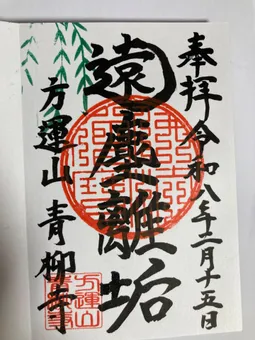 奉拝 令和八年二月十五日
遠塵離垢
方運山 青柳寺
方運山